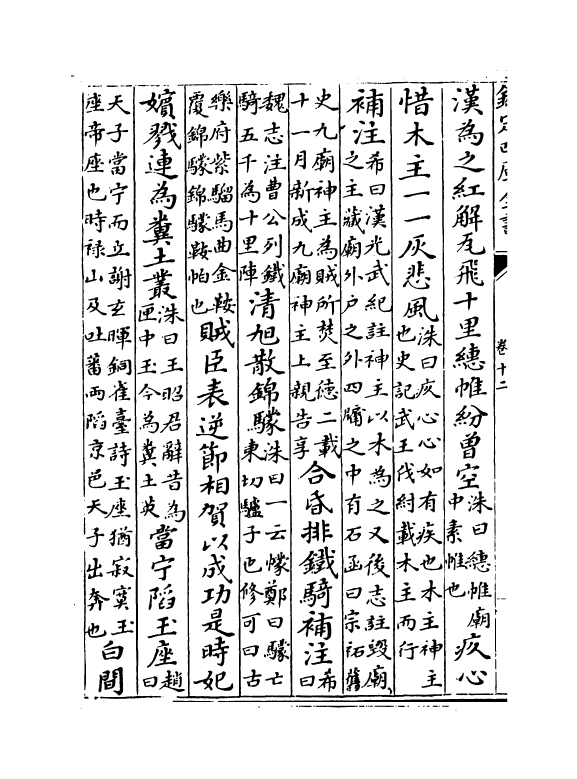 欽定四庫全書
卷十二
漢為之紅解瓦飛十里繐帷紛曽空洙曰繐帷廟中素帷也疚心
惜木主一一灰悲風洙曰疚心心如有疾也木主神主也史記武王伐紂載木主而行
補注希曰漢光武紀註神主以木為之又後志註毁廟之主藏廟外户之外四牖之中有石函曰宗祏舊
史九廟神主為賊所焚至徳二載十一月新成九廟神主上親告享合昏排鐵騎補注希曰
魏志注曹公列鐵騎五千為十里陣清旭散錦䮵洙曰一云幪鄭曰䮵亡東切驢子也修可曰古
樂府紫騮馬曲金鞍覆錦䮵錦䮵鞍帕也賊臣表逆節相賀以成功是時妃
嬪戮連為糞土叢洙曰王昭君辭昔為匣中玉今為糞土英當宁陷玉座趙曰
天子當宁而立謝玄暉銅雀臺詩玉座猶寂寞玉座帝座也時禄山及吐蕃両陷京邑天子出奔也白間